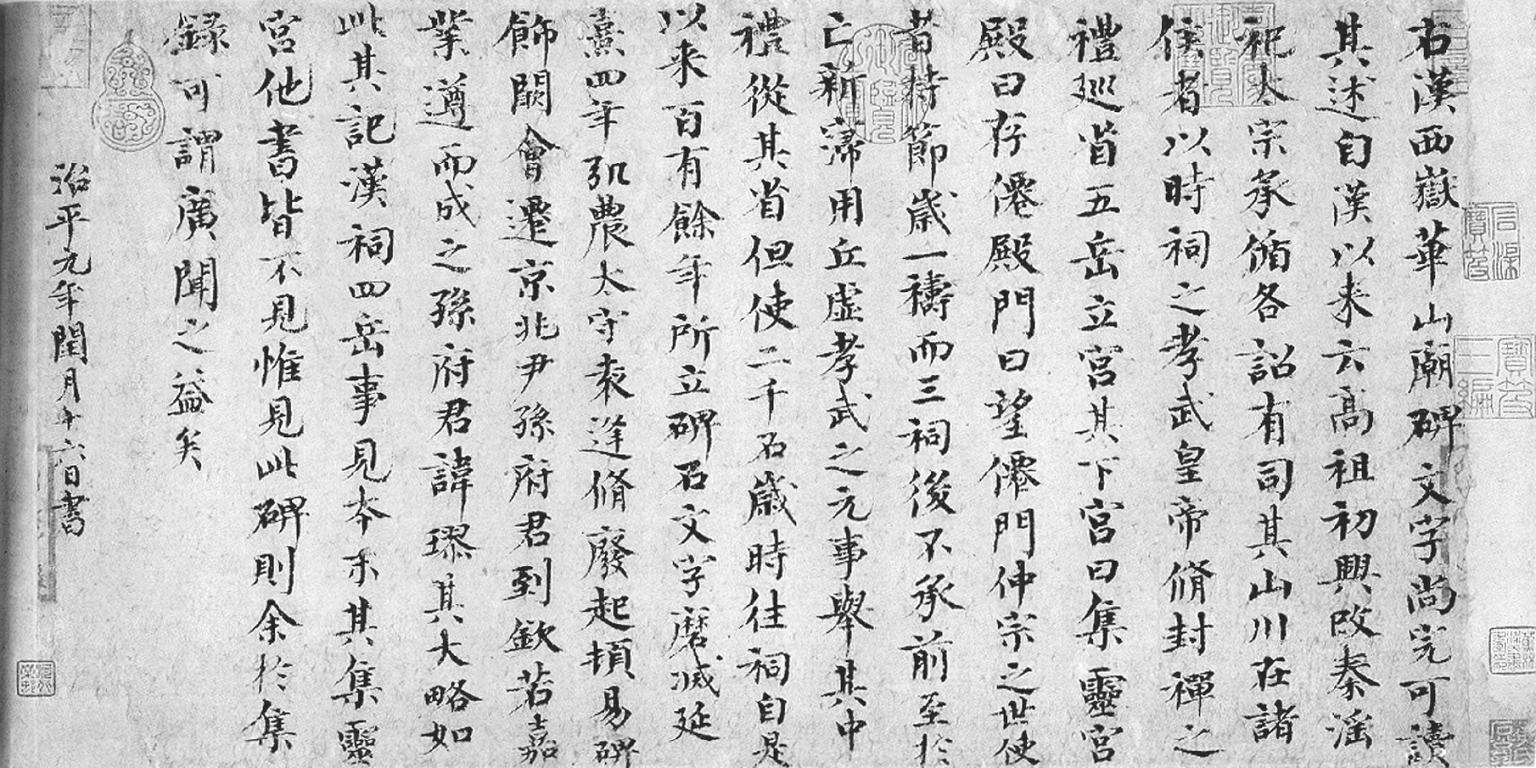 右漢西嶽華山廟碑文字尚完可讀
其述自漢以来云高祖初興改秦淫
祀太宗承循各詔有司其山川在諸
侯者以時祠之孝武皇帝脩封禪之
禮巡省五岳立宮其下宮曰集靈宮
殿曰存僊殿門曰望僊門仲宗之世使
者持節歲一禱而三祠後不承前至於
亡新寖用丘虛孝武之元事舉其中
禮從其省但使二千石歲時往祠自是
以来百有餘年所立碑石文字磨滅延
熹四年弘農太守袁逢脩廢起頓易碑
飾闕會遷京兆尹孫府君到欽若嘉
業遵而成之孫府君諱璆其大略如
此其記漢祠四岳事見本末其集靈
宮他書皆不見惟見此碑則余於集
錄可謂廣聞之益矣
治平元年閏月十六日書